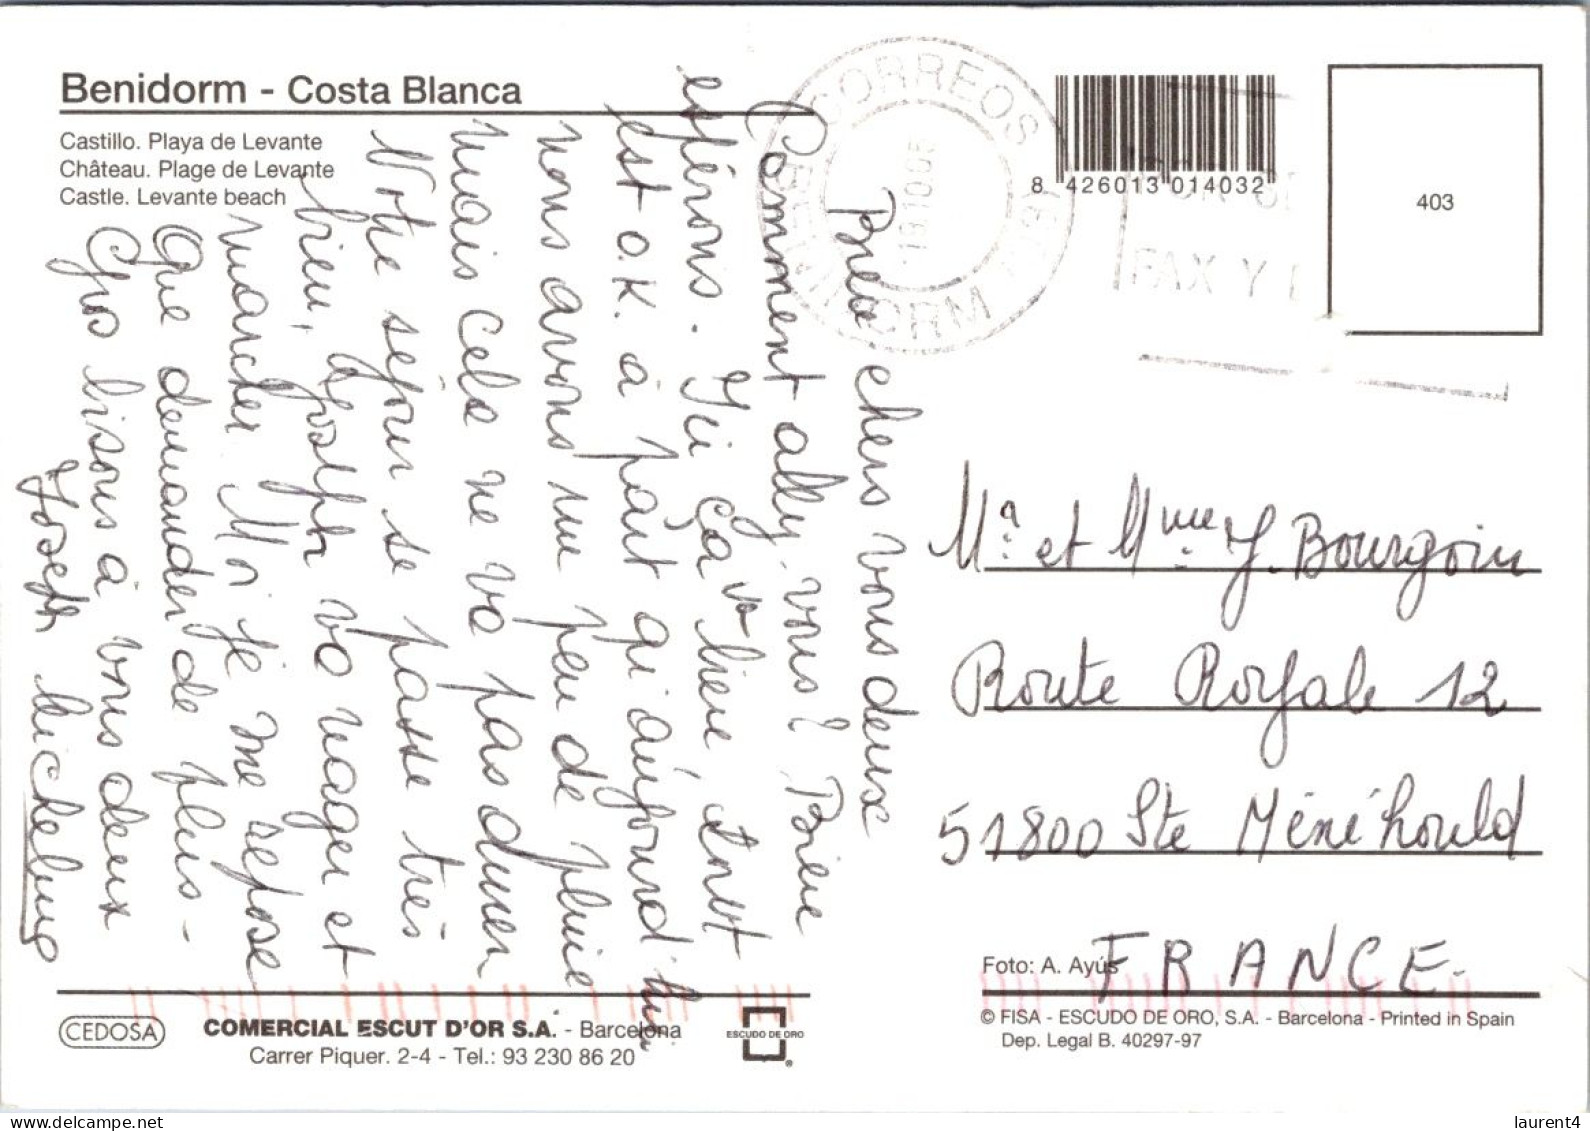 Benidorm - Costa Blanca
Castillo. Playa de Levante
Château. Plage de Levante
Castle. Levante beach
CORREOS
BENIDORM
8 426013 014032
FAX Y
403
chers vous deux
Comment allez-vous? Bien
espérons. Ici ça va bien, tout
est O.K. à part qu'aujourd'hui
nous avons un peu de pluie
mais cela ne va pas durer
Notre séjour se passe très
bien, Joseph va nager et
marcher. Moi je me repose
Que demander de plus -
Gros bisous à vous deux
Joseph Micheline
Mr. et Mme J. Bourgoin
Route Royale 12
51800 Ste Ménéhould
FRANCE.
Foto: A. Ayús
© FISA - ESCUDO DE ORO, S.A. - Barcelona - Printed in Spain
Dep. Legal B. 40297-97
CEDOSA
COMERCIAL ESCUT D'OR S.A. - Barcelona
Carrer Piquer. 2-4 - Tel.: 93 230 86 20
ESCUDO DE ORO
®
delcampe.net
laurent4